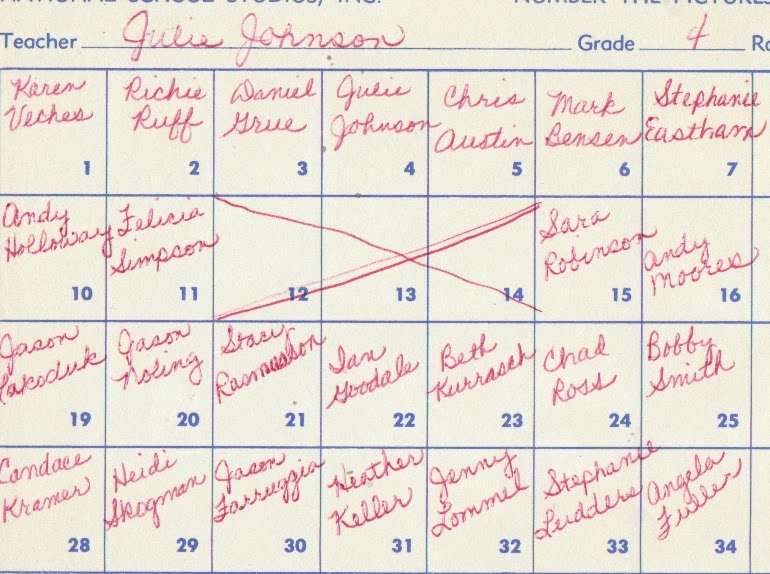 NATIONAL SCHOOL STUDIOS, INC. NUMBER THE PICTURES
Teacher Julie Johnson Grade 4 Ro
Karen
Veches
1
Richie
Ruff
2
Daniel
Grue
3
Julie
Johnson
4
Chris
Austin
5
Mark
Bensen
6
Stephanie
Eastham
7
Andy
Holloway
10
Felicia
Simpson
11
12
13
14
Sara
Robinson
15
Andy
Moores
16
Jason
Lakoduk
19
Jason
Noling
20
Staci
Rasmusson
21
Ian
Goodale
22
Beth
Kurrasch
23
Chad
Ross
24
Bobby
Smith
25
Candace
Kramer
28
Heidi
Skogman
29
Jason
Farruggia
30
Heather
Keller
31
Jenny
Lommel
32
Stephanie
33
Angela
Fuller
34